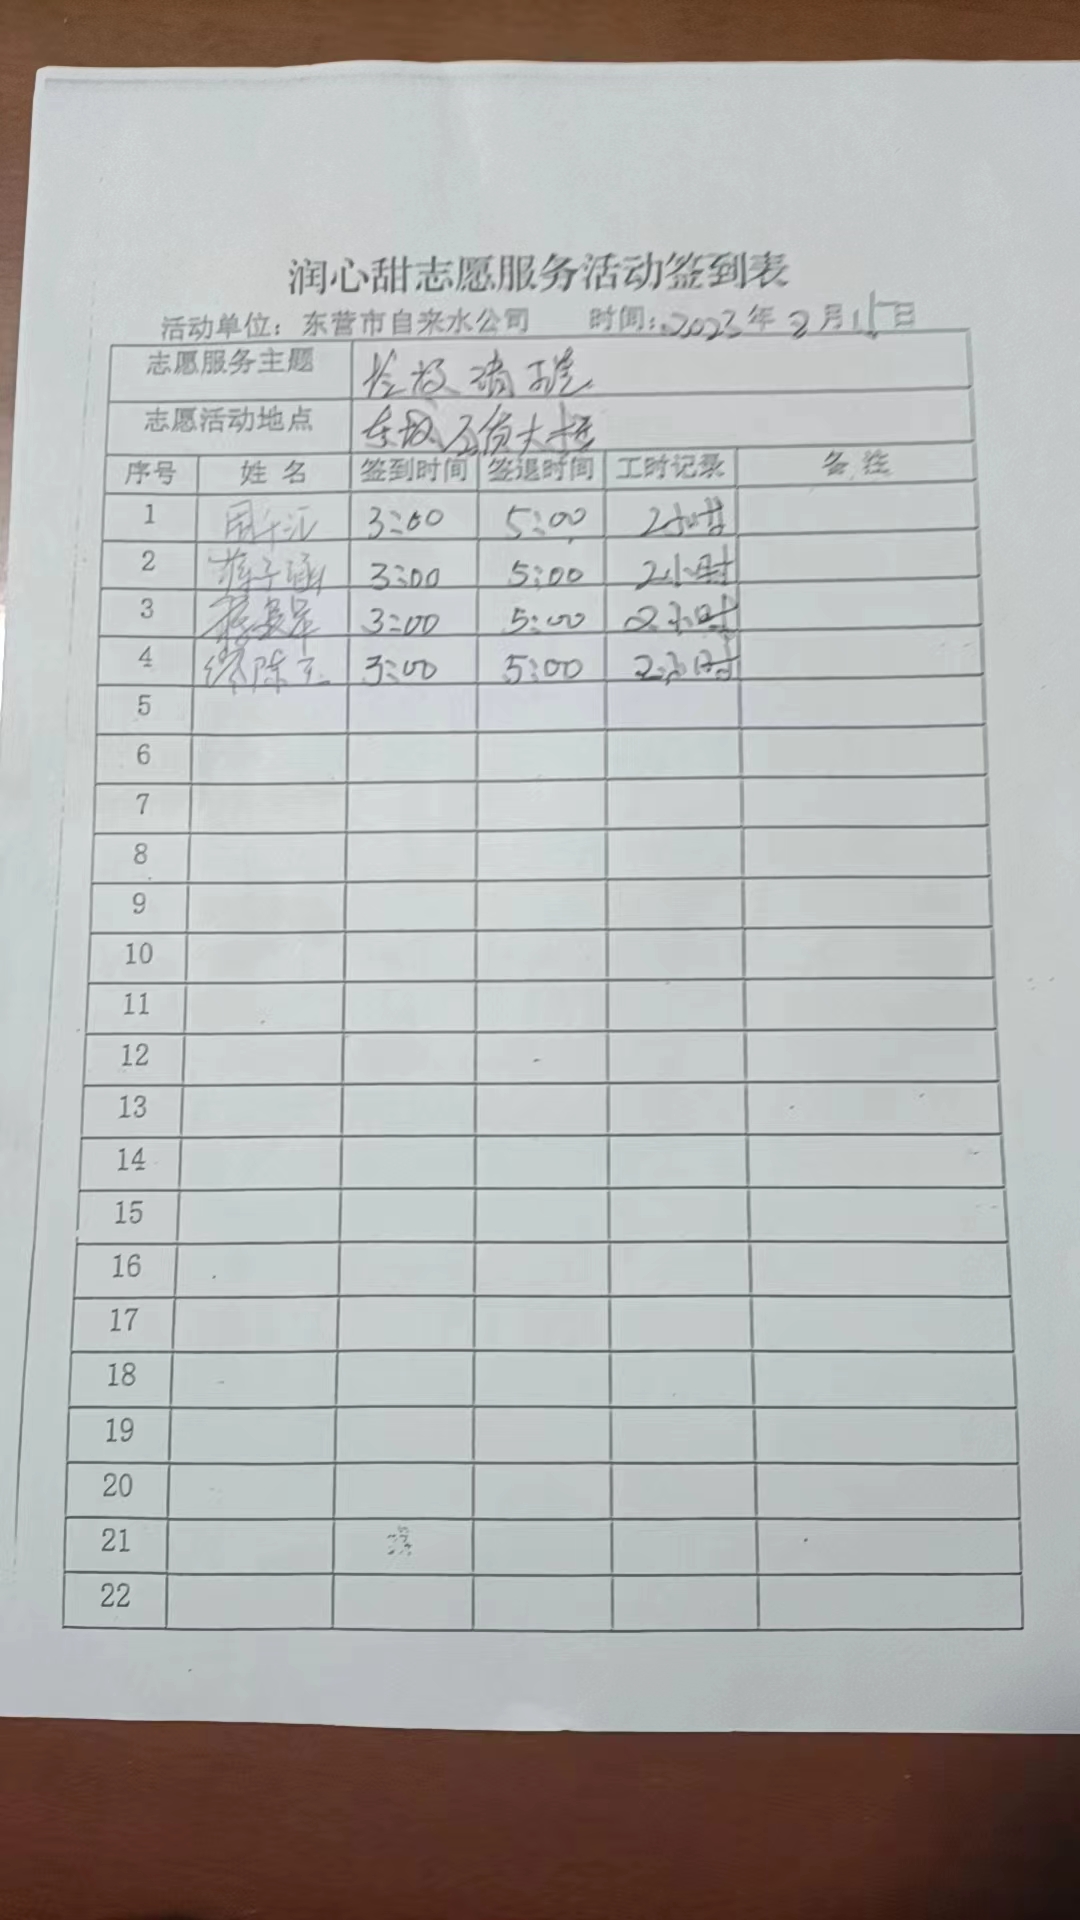 润心甜志愿服务活动签到表
活动单位：东营市自来水公司 时间：2023年3月15日
志愿服务主题
志愿活动地点 百货大楼
序号 姓名 签到时间 签退时间 工时记录 备注
1 3:00 5:00 2小时
2 3:00 5:00 2小时
3 3:00 5:00 2小时
4 3:00 5:00 2小时
5
6
7
8
9
10
11
12
13
14
15
16
17
18
19
20
21
22